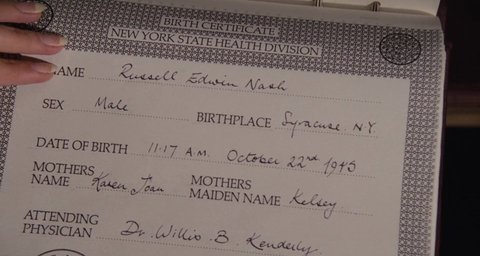 BIRTH CERTIFICATE
NEW YORK STATE HEALTH DIVISION
NAME Russell Edwin Nash
SEX Male BIRTHPLACE Syracuse, N.Y.
DATE OF BIRTH 11:17 A.M. October 22nd 1945
MOTHERS NAME Karen Joan MOTHERS MAIDEN NAME Kelsey
ATTENDING PHYSICIAN Dr. Willis B. Kenderly